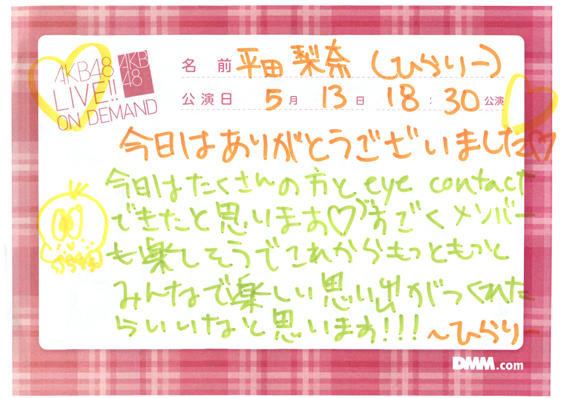 AKB48
LIVE!!
ON DEMAND
AKB
48
名 前 平田 梨奈 (ひらりー)
公演日 5月 13日 18:30公演
今日はありがとうございました♡
今日はたくさんの方とeye contact
できたと思います♡すごくメンバー
も楽しそうでこれからもっともっと
みんなで楽しい思い出がつくれた
らいいなと思います!!!
~ひらりー
DMM.com